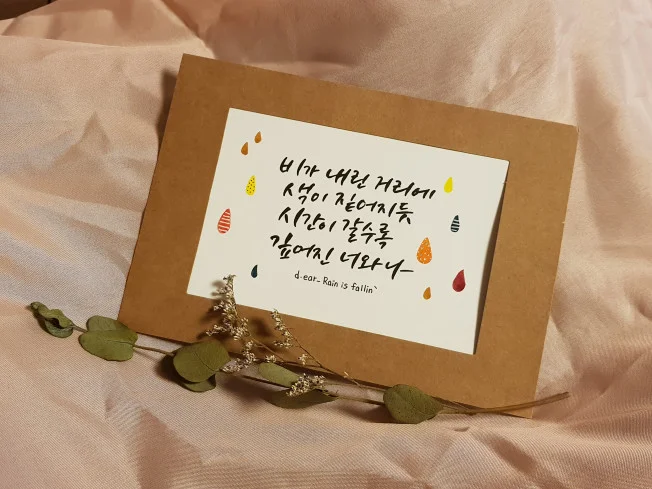 비가 내린 거리에
색이 짙어지듯
시간이 갈수록
깊어진 너와 나
d.ear_ Rain is fallin`